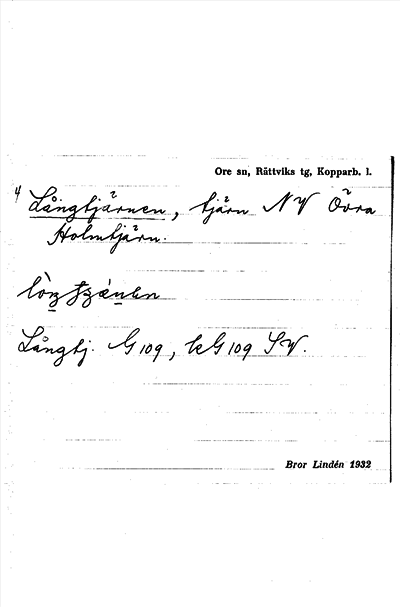 Ore sn, Rättviks tg, Kopparb. l.
4 Långtjärnen, tjärn NV Övra
Holmtjärn.
Långtj. G 109, kG 109 SV.
Bror Lindén 1932